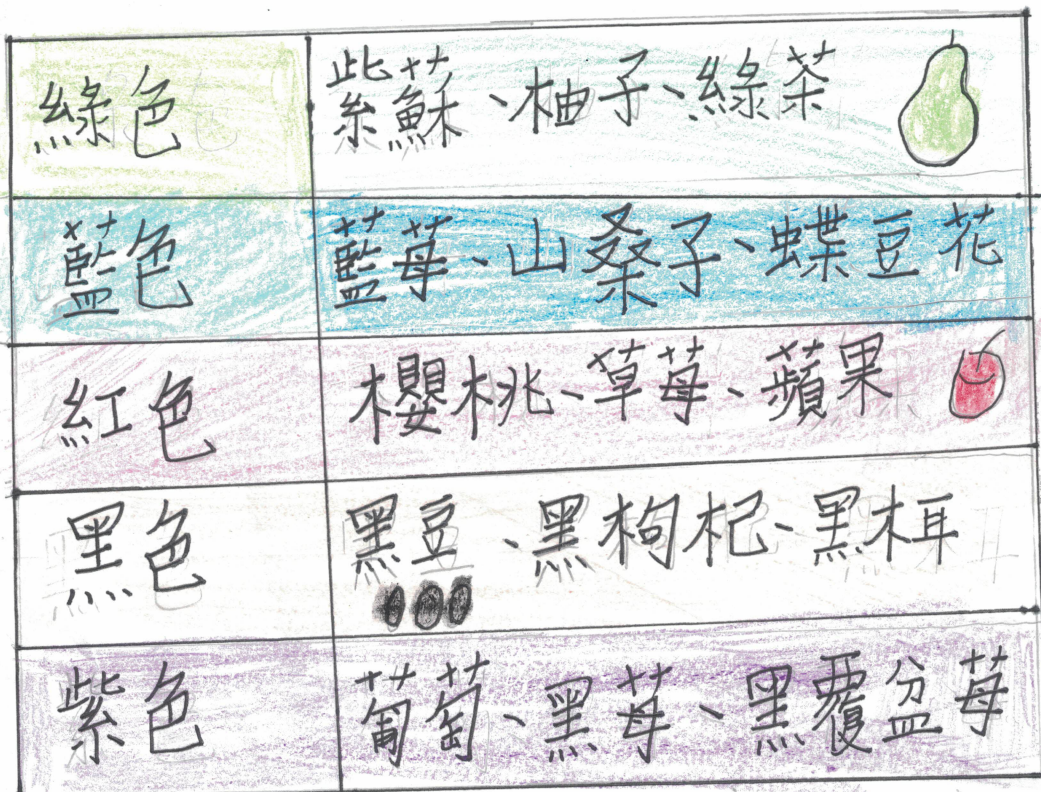 綠色 紫蘇、柚子、綠茶
藍色 藍莓、山桑子、蝶豆花
紅色 櫻桃、草莓、蘋果
黑色 黑豆、黑枸杞、黑木耳
紫色 葡萄、黑莓、黑覆盆莓